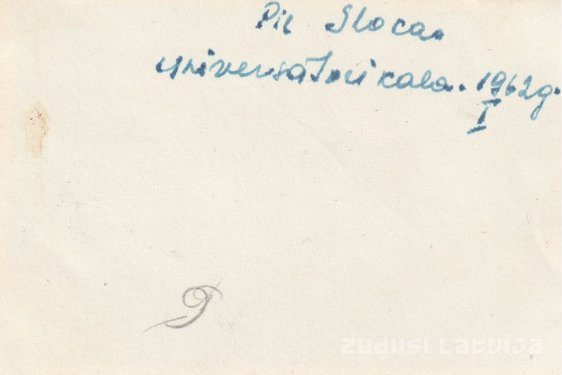 Pie Sloca.
universālveikala. 1962g.
I
zudusi Latvija